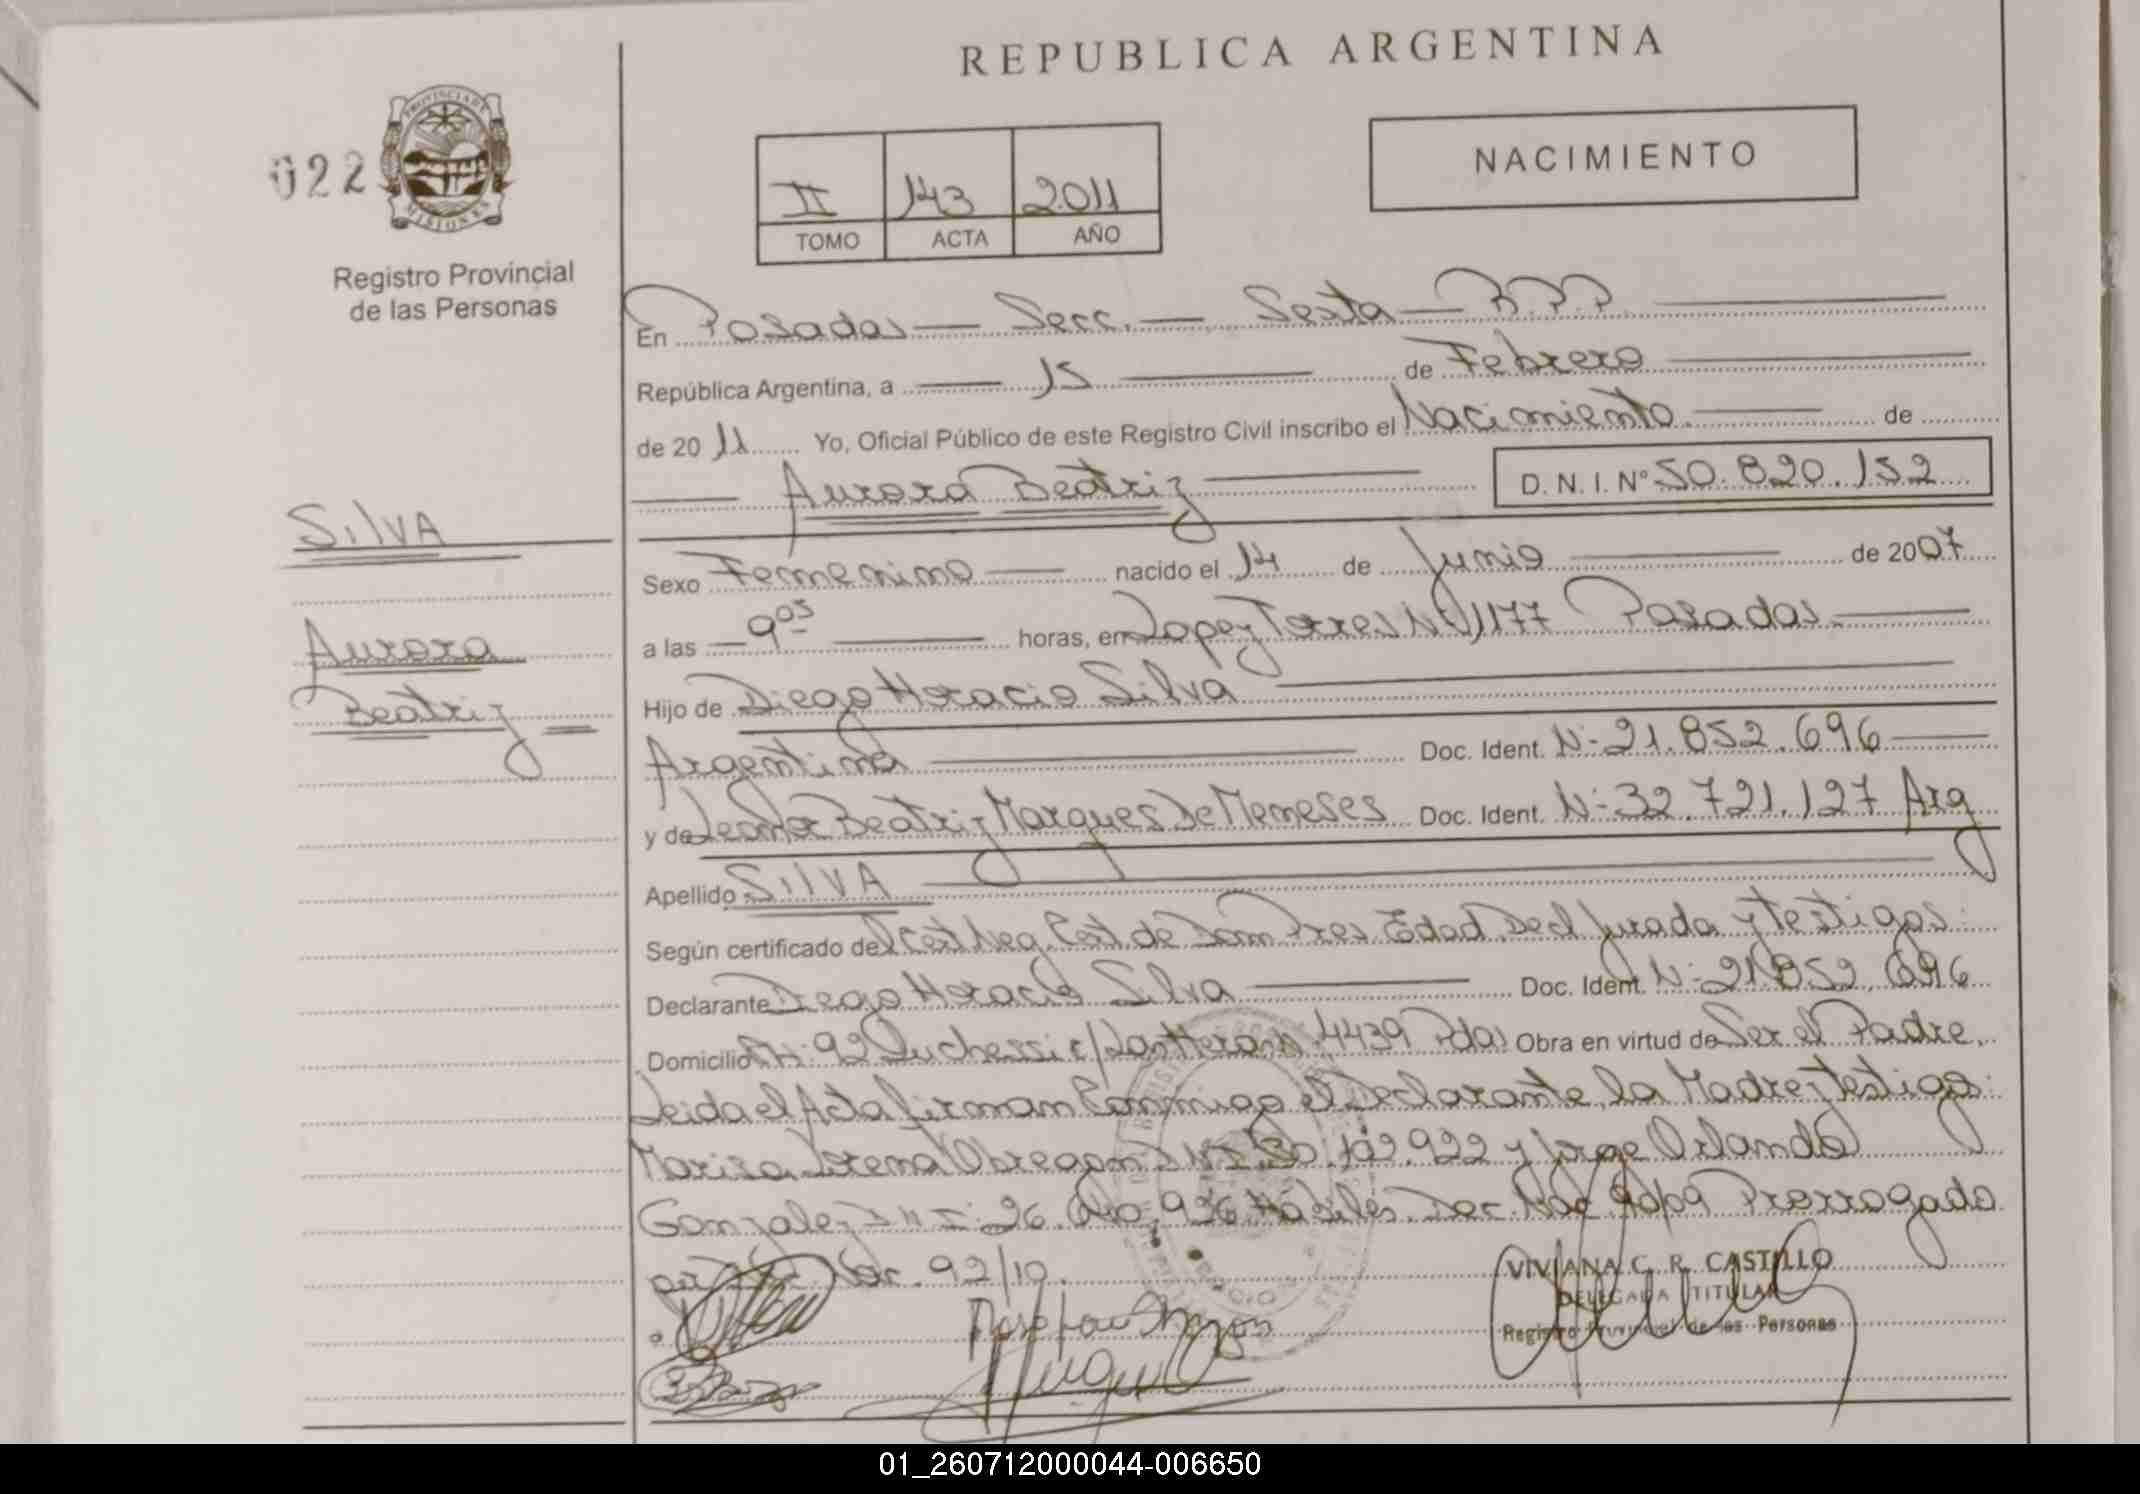 REPUBLICA ARGENTINA
022
PROVINCIA DE
MISIONES
Registro Provincial
de las Personas
II 143 2011
TOMO ACTA AÑO
NACIMIENTO
En Posadas — Secc. — Sexta — R.P.P.
República Argentina, a — 15 — de Febrero
de 2011 Yo, Oficial Público de este Registro Civil inscribo el Nacimiento. de
Aurora Beatriz D. N. I. Nº 50.820.152
SILVA
Aurora
Beatriz
Sexo Femenino — nacido el 14 de Junio de 2007
a las — 9 05 — horas, en Lopez Torres Nº 1177 Posadas
Hijo de Diego Horacio Silva
Argentina Doc. Ident. Nº 21.852.696
y de Leonor Beatriz Marques De Meneses Doc. Ident. Nº 32.721.127 Arg
Apellido SILVA
Según certificado de Neg. de Pres. Edad Decl Jurada y Testigos:
Declarante Diego Horacio Silva Doc. Ident. Nº 21.852.696
Domicilio 92 4439 Pdas Obra en virtud de Ser el Padre.
Leida el Acta firman Conmigo el Declarante, la Madre, Testigos:
Marisa Lorena Obregon 922 y Jorge Orlando
Gonzalez 26. 936 Prorrogado
por 92/10.
VIVIANA C. R. CASTILLO
DELEGADA TITULAR
Registro Provincial de las Personas
01_260712000044-006650